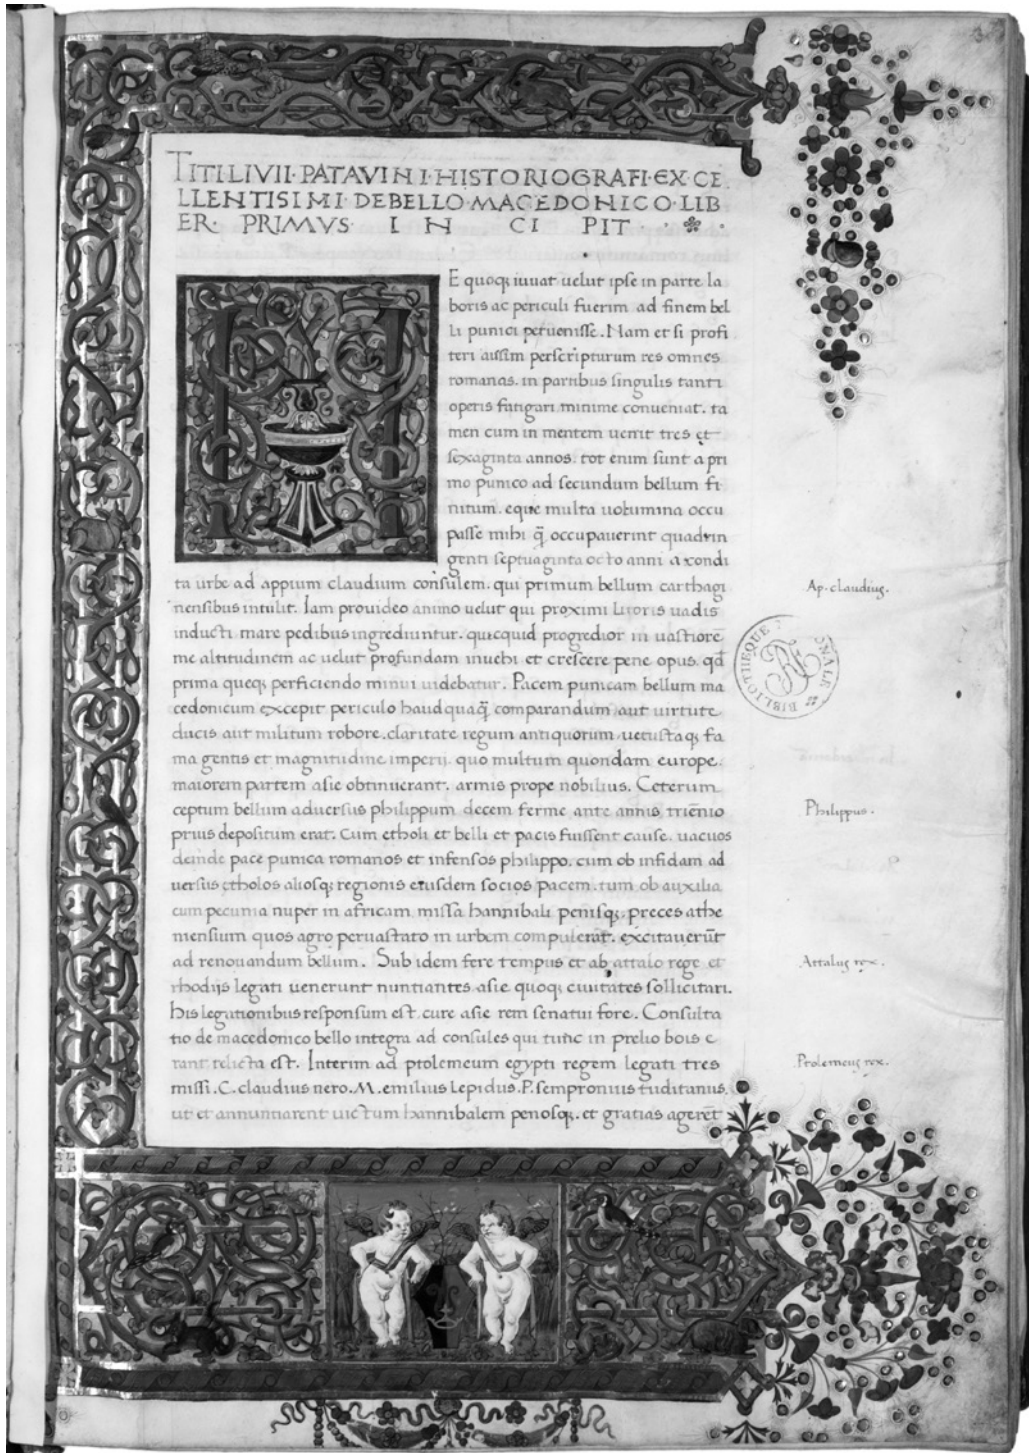 TITI LIVII · PATAVINI · HISTORIOGRAFI · EX · CE
LLENTISIMI · DE BELLO · MACEDONICO · LIB
ER · PRIMVS · INCIPIT ·
M
E quoq; iuuat uelut ipse in parte la
boris ac periculi fuerim ad finem bel
li punici peruenisse. Nam et si profi
teri ausim perscripturum res omnes
romanas. in partibus singulis tanti
operis fatigari minime conueniat. ta
men cum in mentem uenit tres et
sexaginta annos. tot enim sunt a pri
mo punico ad secundum bellum fi
nitum. eque multa uolumina occu
passe mihi q̄ occupauerint quadrin
genti septuaginta octo anni a condi
ta urbe ad appium claudium consulem. qui primum bellum carthagi
nensibus intulit. Iam prouideo animo uelut qui proximi litoris uadis
inducti mare pedibus ingrediuntur. quicquid progredior in uastiorē
me altitudinem ac uelut profundam inuehi et crescere pene opus. qd̄
prima queq; perficiendo minui uidebatur. Pacem punicam bellum ma
cedonicum excepit periculo haud quaq̄ comparandum aut uirtute
ducis aut militum robore. claritate regum antiquorum uetustaq; fa
ma gentis et magnitudine imperij. quo multum quondam europe.
maiorem partem asie obtinuerant. armis prope nobilius. Ceterum
ceptum bellum aduersus philippum decem ferme ante annis triēnio
prius depositum erat. Cum etholi et belli et pacis fuissent cause. uacuos
deinde pace punica romanos et infensos philippo. cum ob infidam ad
uersus etholos aliosq; regionis eiusdem socios pacem. tum ob auxilia
cum pecunia nuper in africam missa hannibali penisq;. preces athe
niensium quos agro peruastato in urbem compulerat. excitauerūt
ad renouandum bellum. Sub idem fere tempus et ab attalo rege et
rhodijs legati uenerunt nuntiantes asie quoq; ciuitates sollicitari.
his legationibus responsum est. cure asie rem senatui fore. Consulta
tio de macedonico bello integra ad consules qui tunc in prelio bois e
rant relicta est. Interim ad ptolemeum egypti regem legati tres
missi. C. claudius nero. M. emilius lepidus. P. sempronius tuditanus.
ut et annuntiarent uictum hannibalem penosq;. et gratias agerēt
Ap. claudius.
BIBLIOTHEQUE NATIONALE
Philippus.
Attalus rex.
Ptolemeus rex.